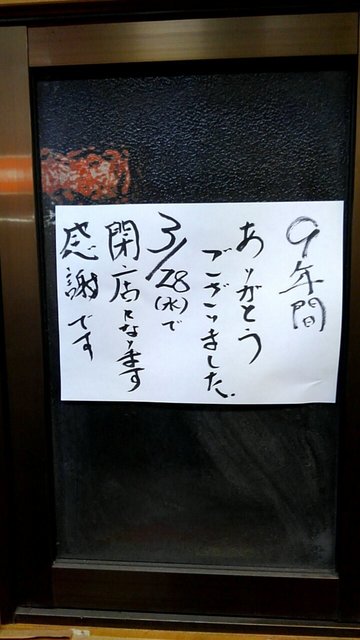 9年間
ありがとう
ございました。
3/28(水)で
閉店になります
感謝です